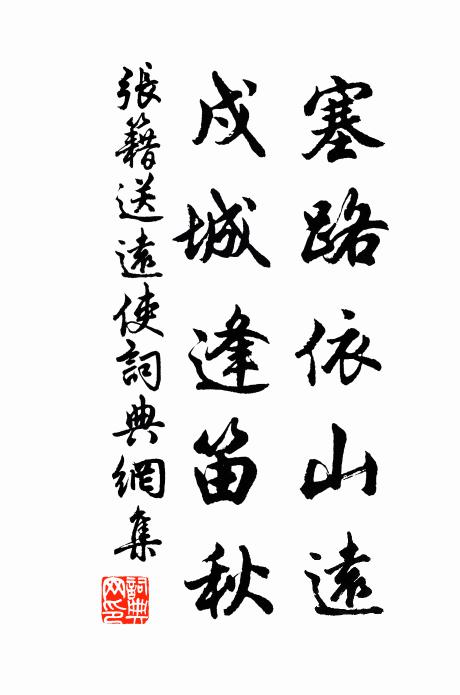 塞路依山遠
戍城逢笛秋
張籍送遠使詞典網集
詞典網印